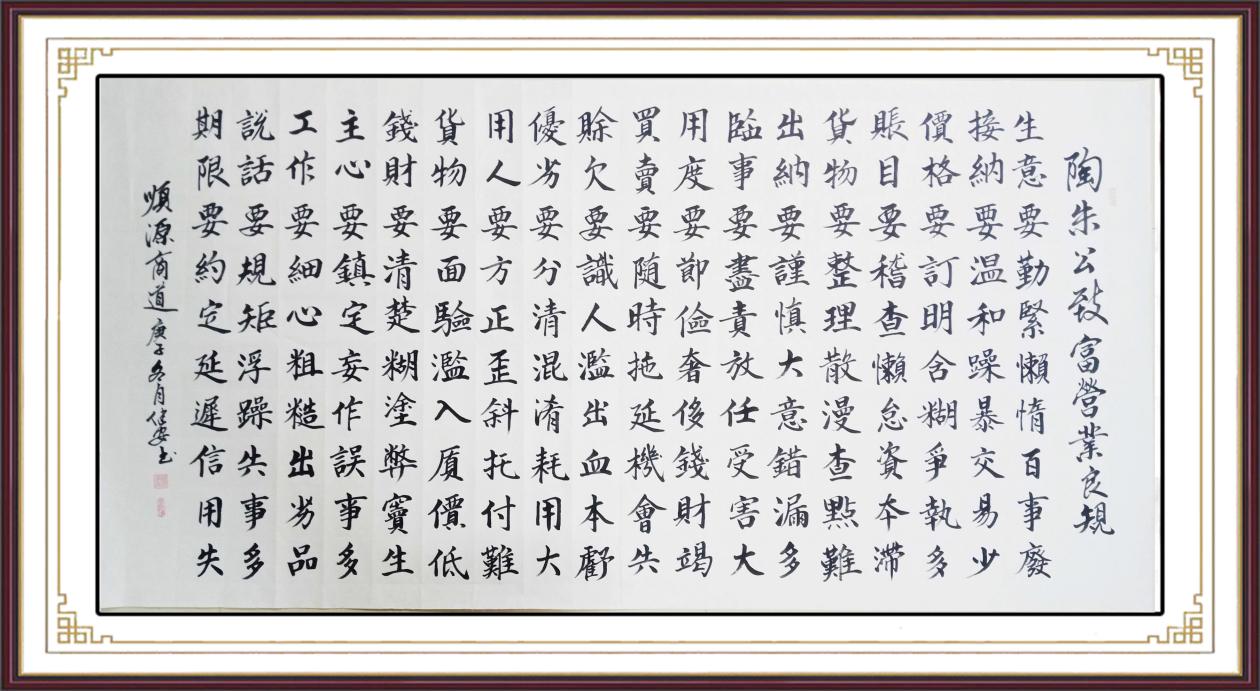 陶朱公致富營業良規
生意要勤緊懶惰百事廢
接納要温和躁暴交易少
價格要訂明含糊爭執多
賬目要稽查懶怠資本滯
貨物要整理散漫查點難
出納要謹慎大意錯漏多
臨事要盡責放任受害大
用度要節儉奢侈錢財竭
買賣要随時拖延機會失
賒欠要識人濫出血本虧
優劣要分清混淆耗用大
用人要方正歪斜托付難
貨物要面驗濫入質價低
錢財要清楚糊塗弊竇生
主心要鎮定妄作誤事多
工作要細心粗糙出劣品
説話要規矩浮躁失事多
期限要約定延遲信用失
順源商道 庚子冬月